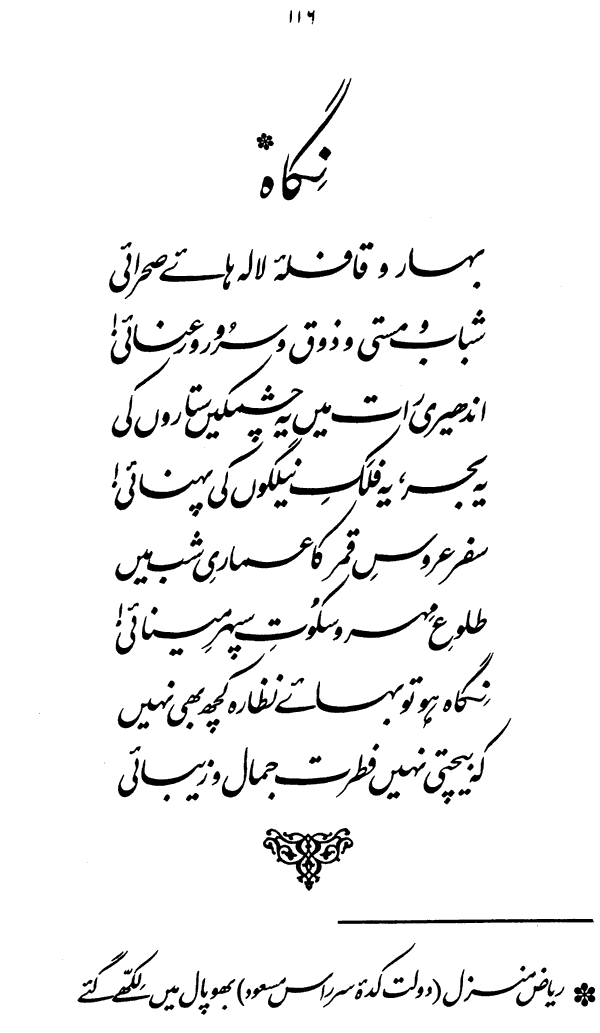 ۱۱۶
نِگاہ*
بہار و قافلۂ لالہ ہائے صحرائی
شباب و مستی و ذوق و سُرور و رعنائی!
اندھیری رات میں یہ چشمکیں ستاروں کی
یہ بحر، یہ فلکِ نیلگوں کی پہنائی!
سفر عروسِ قمر کا عماریِ شب میں
طلوعِ مِہر و سکُوتِ سپہرِ مینائی!
نِگاہ ہو تو بہائے نظارہ کچھ بھی نہیں
کہ بیچتی نہیں فطرت جمال و زیبائی
* ریاض منزل (دولت کدۂ سر راس مسعود) بھوپال میں لِکھّے گئے